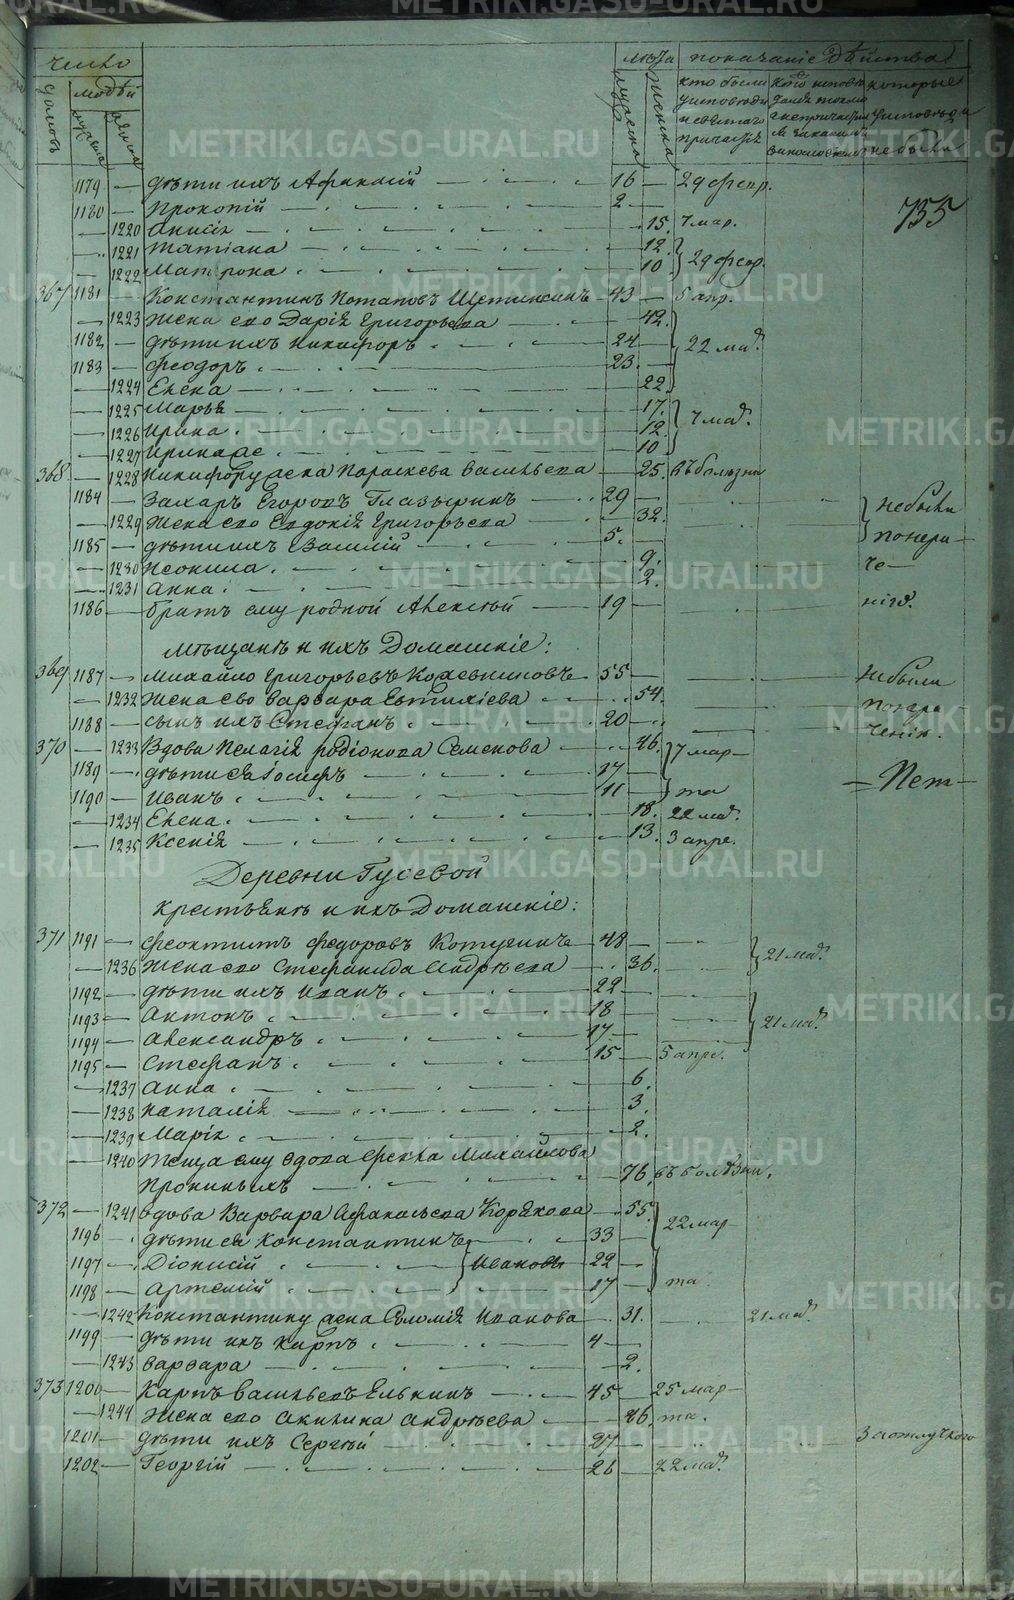 число
лѣта показаніе дѣйства
домовъ людей
мужска женска
кто были у исповѣди и святаго причастія
которые у исповѣди не были
1179 — дѣти ихъ Афанасій 16 — 29 февр.
755
1180 — Прокопій 2 —
— 1220 Анисія 15. 7 мар.
— 1221 Татіана 12.
— 1222 Матрона 10 29 февр.
367 1181 — Константинъ Потаповъ Щетинкинъ 43 — 5 апр.
— 1223 жена его Дарія Григорьева 42.
1182 — дѣти ихъ Никифоръ 24 — 22 мар.
1183 — Феодоръ 23 —
— 1224 Елена 22.
— 1225 Марья 17.
— 1226 Ирина 12. 7 мар.
— 1227 Ирина ж 10
368 — 1228 Никифору жена Параскева Васильева — 25. въ болѣзни
1184 — Захаръ Егоровъ Глазыринъ 29 — не были
— 1229 жена его Евдокія Григорьева 32.
1185 — дѣти ихъ Василій 5. — по нера-
— 1230 Неонила 9. че-
— 1231 Анна 2.
1186 — братъ ему родной Алексѣй 19 — нію.
мѣщанъ и ихъ Домашніе:
369 1187 — Михайло Григорьевъ Кожевниковъ 55 — не были
— 1232 жена его Варвара Евтихіева 54. по нера
1188 — сынъ ихъ Стефанъ 20 — ченію.
370 — 1233 Вдова Пелагія Родіонова Семенова 46. 7 мар
1189 — дѣти ея Іосифъ 17 — — Пет —
1190 — Иванъ 11 — та
— 1234 Елена 18. 22 мар.
— 1235 Ксенія 13. 3 апре.
Деревни Гусевой
крестьянъ и ихъ Домашніе:
371 1191 — Феоктистъ Федоровъ Котугинъ 48 —
— 1236 жена его Стефанида Андрѣева 36. 21 мар.
1192 — дѣти ихъ Иванъ 22 —
1193 — Антонъ 18 —
1194 — Александръ 17 — 21 мар.
1195 — Стефанъ 15 — 5 апре.
— 1237 Анна 6.
— 1238 Наталія 3.
— 1239 Марія 2.
— 1240 Теща ему вдова Фекла Михайлова
Прониныхъ 76. въ болѣзни.
372 — 1241 вдова Варвара Афанасьева Корякова 55.
1196 — дѣти ея Константинъ 33 — 22 мар
1197 — Діонисій Ивановы 22 —
1198 — Артемій 17 — та
— 1242 Константину жена Соломія Иванова 31. 21 мар.
1199 — дѣти ихъ Карпъ 4 —
— 1243 Варвара 2.
373 1200 — Карпъ Васильевъ Елькинъ 45 — 25 мар
— 1244 жена его Акилина Андрѣева 46. та.
1201 — дѣти ихъ Сергѣй 27 — За отлучкою
1202 — Георгій 26 — 22 мар.
METRIKI.GASO-URAL.RU